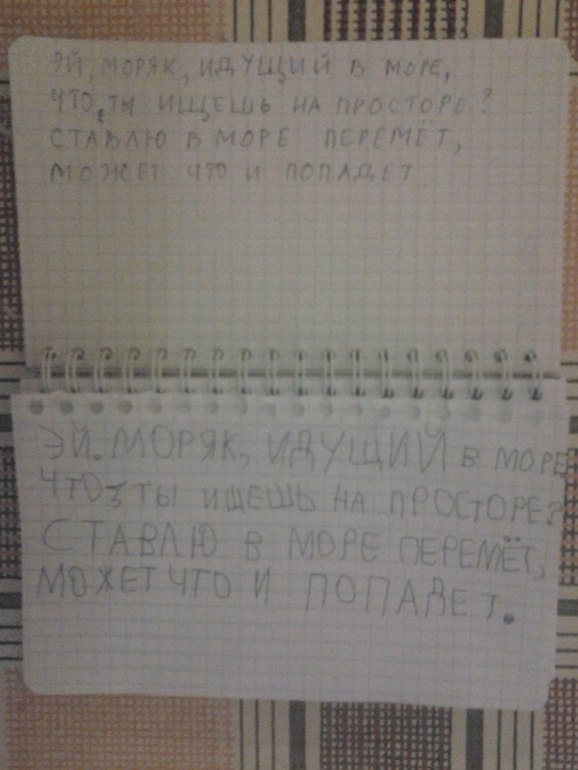 ЭЙ, МОРЯК, ИДУЩИЙ В МОРЕ,
ЧТО, ТЫ ИЩЕШЬ НА ПРОСТОРЕ?
СТАВЛЮ В МОРЕ ПЕРЕМЁТ,
МОЖЕТ ЧТО И ПОПАДЕТ
ЭЙ. МОРЯК, ИДУЩИЙ В МОРЕ
ЧТО, ТЫ ИЩЕШЬ НА ПРОСТОРЕ?
СТАВЛЮ В МОРЕ ПЕРЕМЁТ,
МОЖЕТ ЧТО И ПОПАДЕТ.